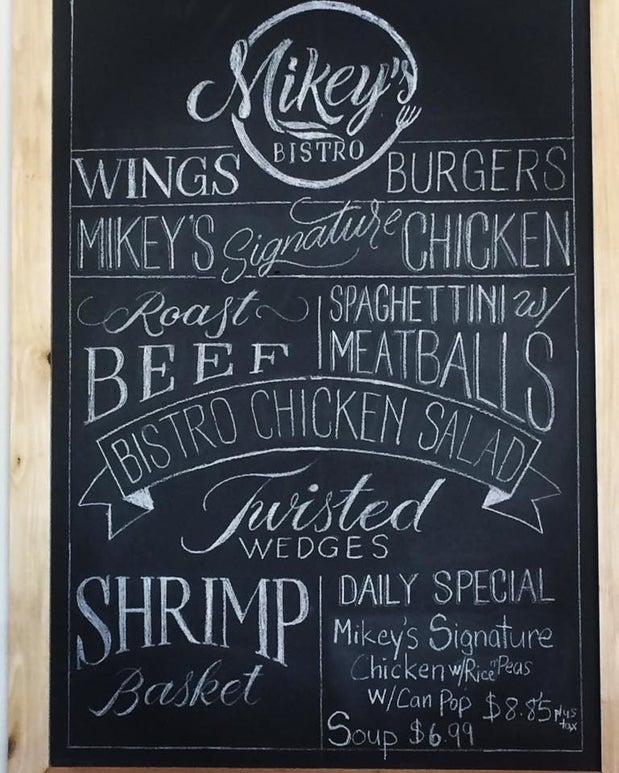 Mikey's
BISTRO
WINGS
BURGERS
MIKEY'S Signature CHICKEN
Roast
BEEF
SPAGHETTINI W/
MEATBALLS
BISTRO CHICKEN SALAD
Twisted
WEDGES
SHRIMP
Basket
DAILY SPECIAL
Mikey's Signature
Chicken w/Rice "n" Peas
W/Can Pop $8.85 plus tax
Soup $6.99